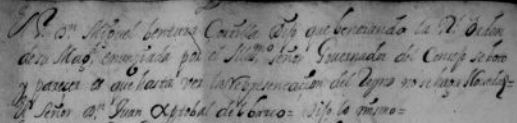 Sr. Dn. Miguel Bentura Dijo que benerando la Rl. orden
de su Magd. enunciada por el Illmo. señor Governador del Consejo su boto
y parecer es que hasta ver la representacion del Reyno no se haga Novedad=
El Señor Dn. Juan Xptobal de Dijo lo mismo=